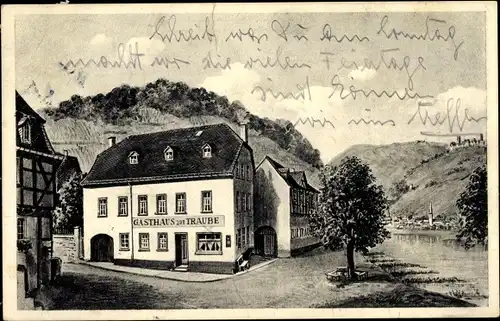 Schreib was Du am Sonntag
machst wo die vielen Feiertage
sind können
wir uns treffen
GASTHAUS ZUR TRAUBE